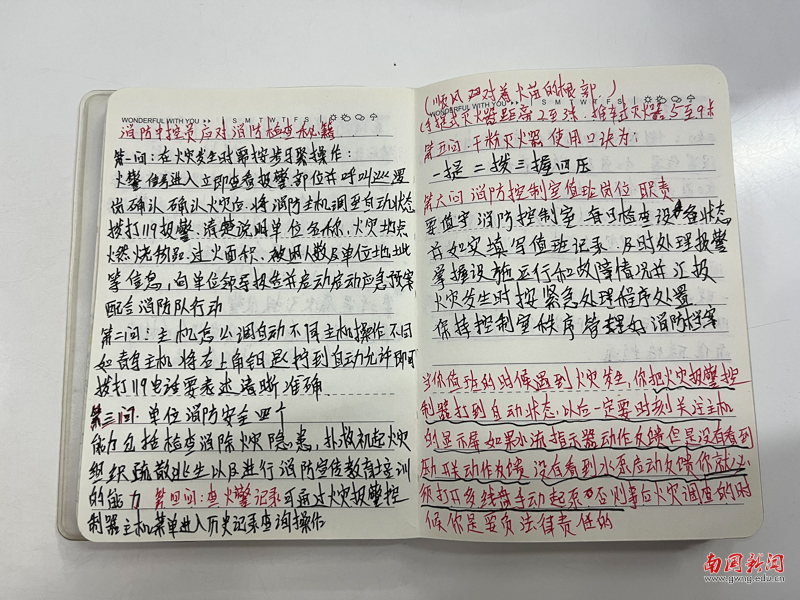 WONDERFUL WITH YOU S M T W T F S
消防中控员应对消防检查秘籍
第一问:在火灾发生时需按步骤操作:
火警信号进入立即查看报警部位并呼叫巡逻
岗确认 确认火灾后.将消防主机调至自动状态
拨打119报警.清楚说明单位名称.火灾地点
燃烧物品.过火面积.被困人数及单位地址
等信息,向单位领导报告并启动应急预案
配合消防队行动
第二问:主机怎么调自动不同主机操作不同
如青鸟主机将右上角钥匙拧到自动允许即可
拨打119电话要表述清晰准确.
第三问.单位消防安全四个
能力包括检查消除火灾隐患,扑救初起火灾
组织疏散逃生以及进行消防宣传教育培训
的能力 第四问:查火警记录可通过火灾报警控
制器主机菜单进入历史记录查询操作
(顺风 对着火苗的根部.)
WONDERFUL WITH YOU S M T W T F S
(手提式灭火器距离2至3米.推车式灭火器5至9米
第五问.干粉灭火器使用口诀为:
一提 二拨三握四压
第六问 消防控制室值班岗位 职责
要值守消防控制室 每日检查设备状态
并如实填写值班记录.及时处理报警
掌握设施运行和故障情况并汇报
火灾发生时按紧急处理程序处置
保持控制室秩序 管理好消防档案
当你值班的时候遇到火灾发生,你把火灾报警控
制器打到自动状态.以后一定要时刻关注主机
的显示屏如果水流指示器动作反馈但是没有看到
联动作反馈.没有看到水泵启动反馈你就必
须打开多线盘手动起泵 否则事后火灾调查的时
候你是要负法律责任的
南国新闻
www.gwng.edu.cn